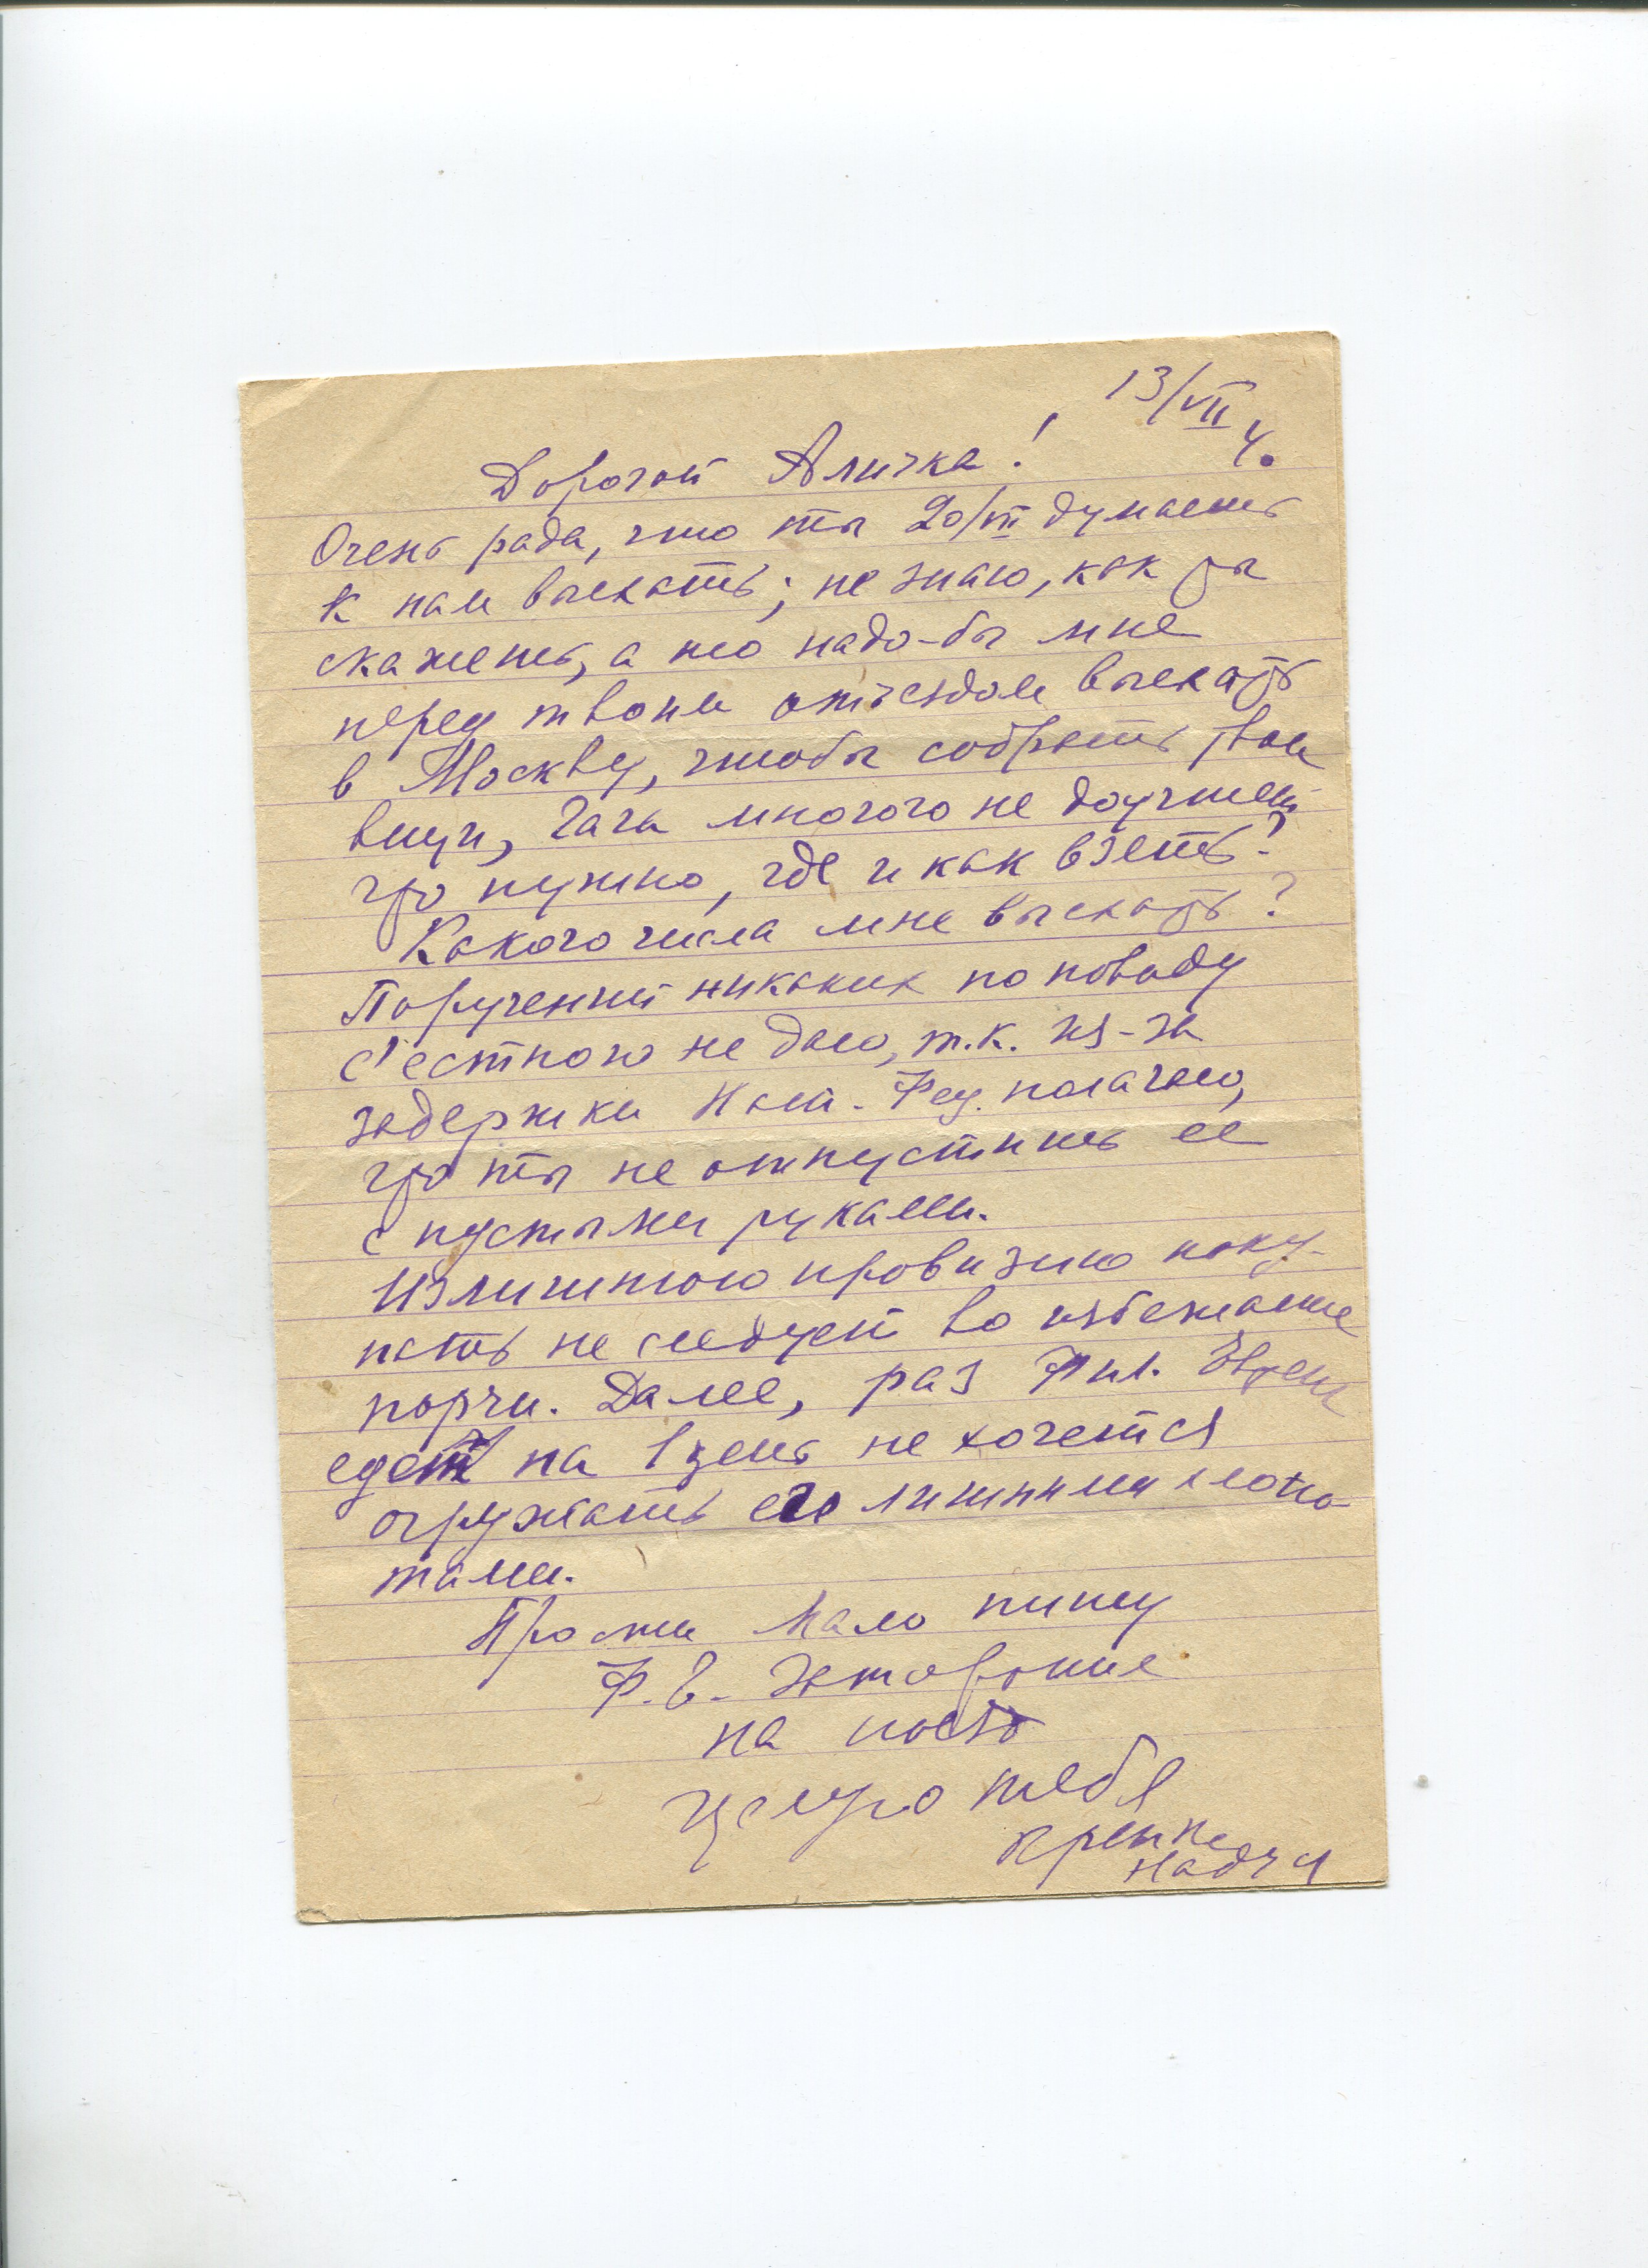 13/VII
4.
Дорогой Аличка!
Очень рада, что ты 20/VII думаешь
к нам выехать; не знаю, как ты
скажешь, а но надо-бы мне
перед твоим отъездом выехать
в Москву, чтобы собрать твои
вещи, Гага многого не доучтет
что нужно, где и как взять?
Какого числа мне выехать?
Поручений никаких по поводу
с'естного не даю, т.к. из-за
задержки Нат. Фед. полагаю,
что ты не отпустишь ее
с пустыми руками.
Излишнюю провизию поку-
пать не следует во избежание
порчи. Далее, раз Фил.
едет на 1 день не хочется
огружать его лишними хлопо-
тами.
Прости мало пишу
Ф.Е. заторопил
на поезд
Целую тебя
крепко
Надя